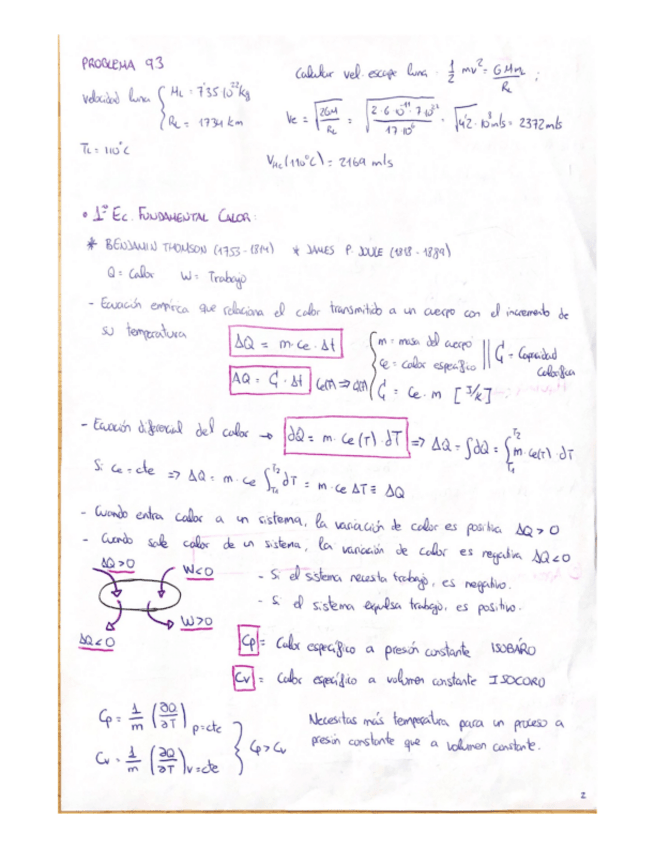 PROBLEMA 93
velocidad luna { ML = 7'35·10²²kg
RL = 1734 km
TL = 110°C
Calcular vel. escape luna · 1/2 mv² = GMm/RL ;
Ve = √(2GM/RL) = √(2·6·10⁻¹¹·7·10²²/17·10⁵) = = 2372 m/s
VHe(110°C) = 2169 m/s
• 1ª EC. FUNDAMENTAL CALOR:
* BENJAMIN THOMSON (1753-1814) * JAMES P. JOULE (1818-1889)
Q = Calor W = Trabajo
- Ecuación empírica que relaciona el calor transmitido a un cuerpo con el incremento de
su temperatura
ΔQ = m·ce·Δt
ΔQ = C·Δt
{ m = masa del cuerpo
ce = calor específico
C = Ce·m [J/K]
|| C = Capacidad
calorífica
- Ecuación diferencial del calor → dQ = m·ce(T)·dT => ΔQ = ∫dQ = ∫T1T2 m·ce(T)·dT
Si ce = cte => ΔQ = m·ce ∫T1T2 dT = m·ce ΔT ≡ ΔQ
- Cuando entra calor a un sistema, la variación de calor es positiva ΔQ > 0
- Cuando sale calor de un sistema, la variación de calor es negativa ΔQ < 0
ΔQ > 0 W < 0
- Si el sistema necesita trabajo, es negativo.
- Si el sistema expulsa trabajo, es positivo.
W > 0
ΔQ < 0
Cp = Calor específico a presión constante ISOBARO
Cv = Calor específico a volumen constante ISOCORO
Cp = 1/m (∂Q/∂T) p=cte
Cv = 1/m (∂Q/∂T) v=cte
} Cp > Cv
Necesitas más temperatura para un proceso a
presión constante que a volumen constante.
2